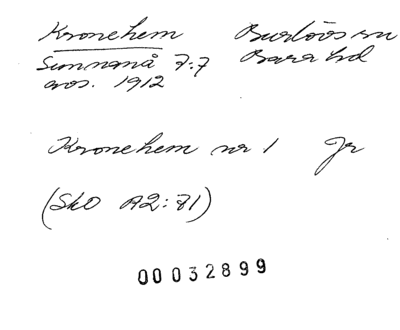 Kronehem Burlövs sn
Sunnanå 7:7 Bara hd
avs. 1912
Kronehem nr 1 Jr
(SkO A2:81)
00032899